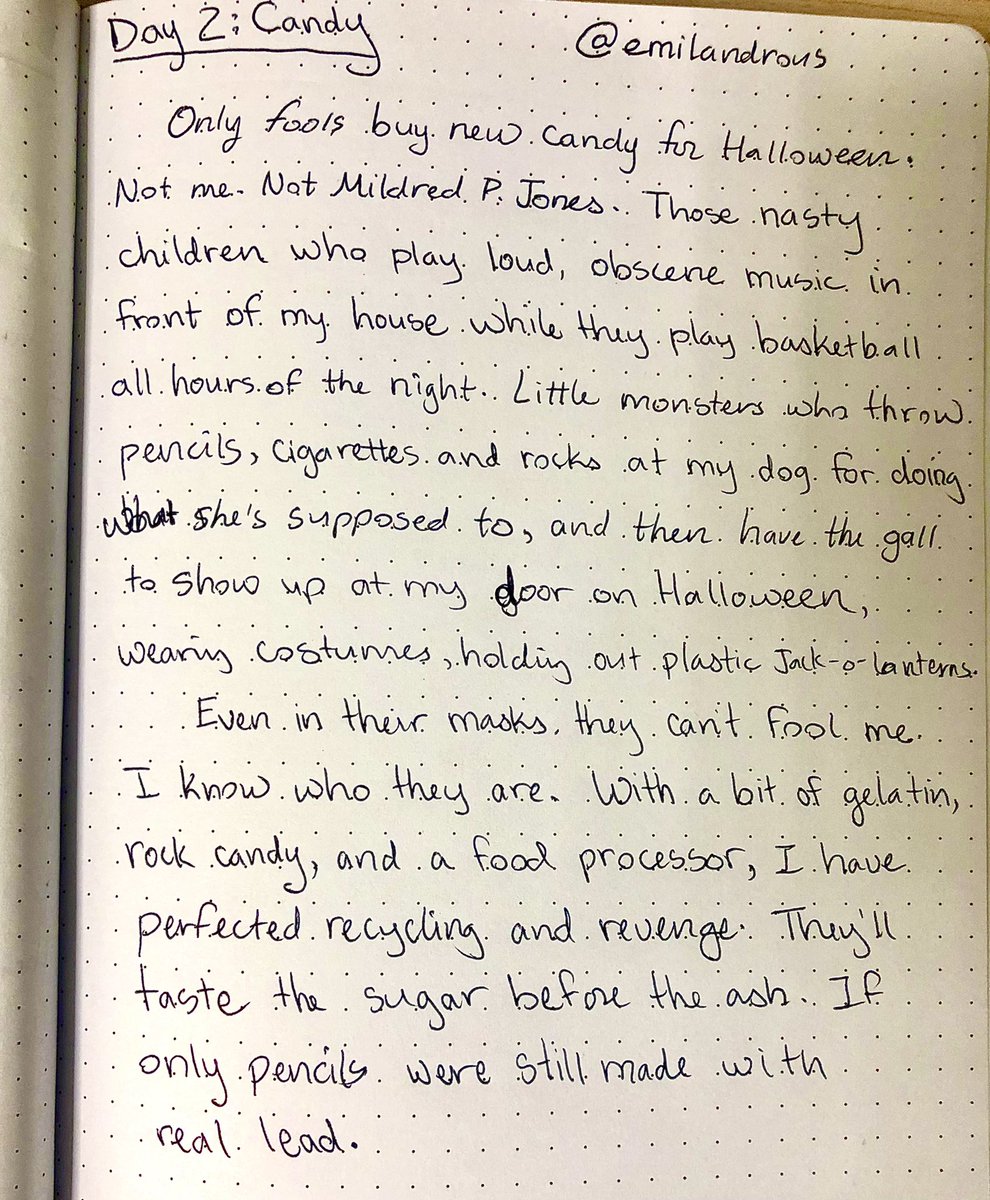 Day 2: Candy
@emilandrous
Only fools buy new candy for Halloween.
Not me. Not Mildred P. Jones. Those nasty
children who play loud, obscene music in
front of my house while they play basketball
all hours of the night. Little monsters who throw
pencils, cigarettes and rocks at my dog for doing
what she's supposed to, and then have the gall
to show up at my door on Halloween,
wearing costumes, holding out plastic Jack-o-lanterns.
Even in their masks they can't fool me.
I know who they are. With a bit of gelatin,
rock candy, and a food processor, I have
perfected recycling and revenge. They'll
taste the sugar before the ash. If
only pencils were still made with
real lead.